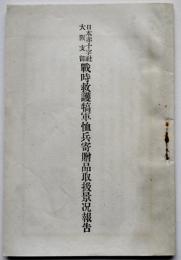 日本赤十字社
大阪支部
戰時救護犒軍恤兵寄贈品取扱景況報告